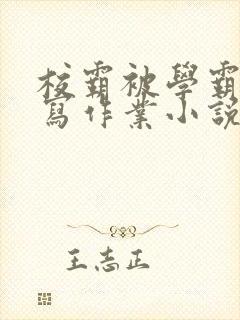 校霸被學霸
寫作業小說
王志正